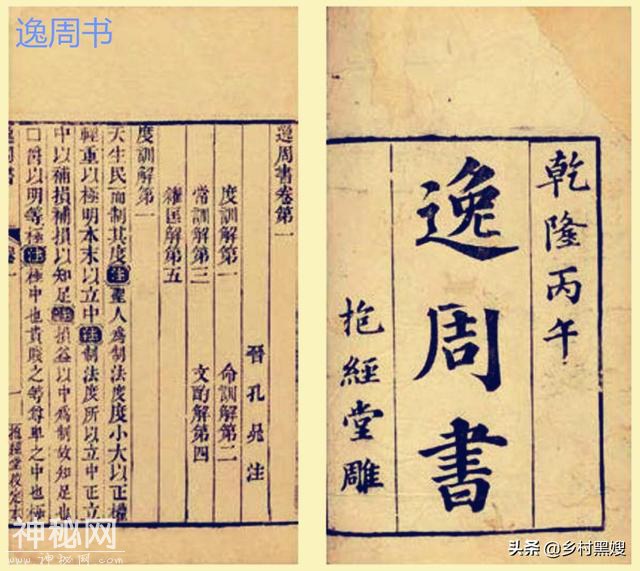 逸周书
乾隆丙午
逸周書
抱經堂雕
逸周書卷第一
晉孔晁注
度訓解第一 命訓解第二
常訓解第三 文酌解第四
糴匡解第五
度訓解第一
天生民而制其度注聖人爲制法度度小大以正權
輕重以極明本末以立中注制法度所以立中正立
中以補損補損以知足注損益以中爲制故知足也
□爵以明等極注極中也貴賤之等尊卑之中也極
逸周書 卷一 一 抱經堂校定本
神秘网
www.神秘网.com
头条 @乡村黑嫂